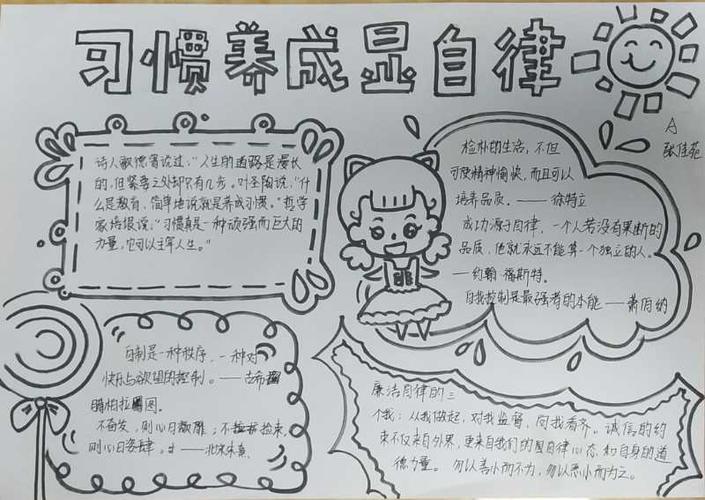 习惯养成显自律
A
张佳苑
诗人歌德曾说过,“人生的道路是漫长
的,但紧要之处却只有几步。叶圣陶说,“什
么是教育,简单地说就是养成习惯。”哲学
家培根说,“习惯真是一种顽强而巨大的
力量,它可以主宰人生。”
检朴的生活,不但
可使精神愉快,而且可以
培养品质。——徐特立
成功源于自律,一个人若没有果断的
品质,他就永远不能算一个独立的人。
——约翰·福斯特。
自我控制是最强者的本能——萧伯纳
自制是一种秩序,一种对
快乐与欲望的控制。——古希
腊柏拉图。
不奋发,则心日颓靡;不检束,
则心日恣肆。——北宋朱熹
廉洁自律的三
个我:从我做起,对我监督,向我看齐。诚信的约
束不仅来自外界,更来自我们的自律心态,和自身的道
德力量。勿以善小而不为,勿以恶小而为之。